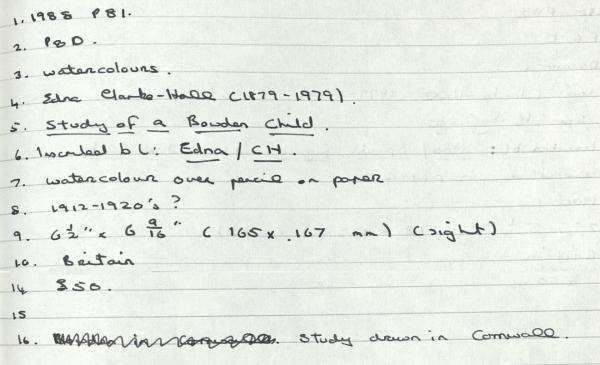 1. 1988 PB1.
2. P&D.
3. watercolours.
4. Edna Clarke-Hall (1879-1979).
5. Study of a Bowden Child.
6. Inscribed b L: Edna / CH.
7. watercolour over pencil on paper
8. 1912-1920's ?
9. 6 1/2" x 6 9/16" ( 165 x .167 mm) (sight)
10. Britain
14 $50.
15
16. Study drawn in Cornwall.